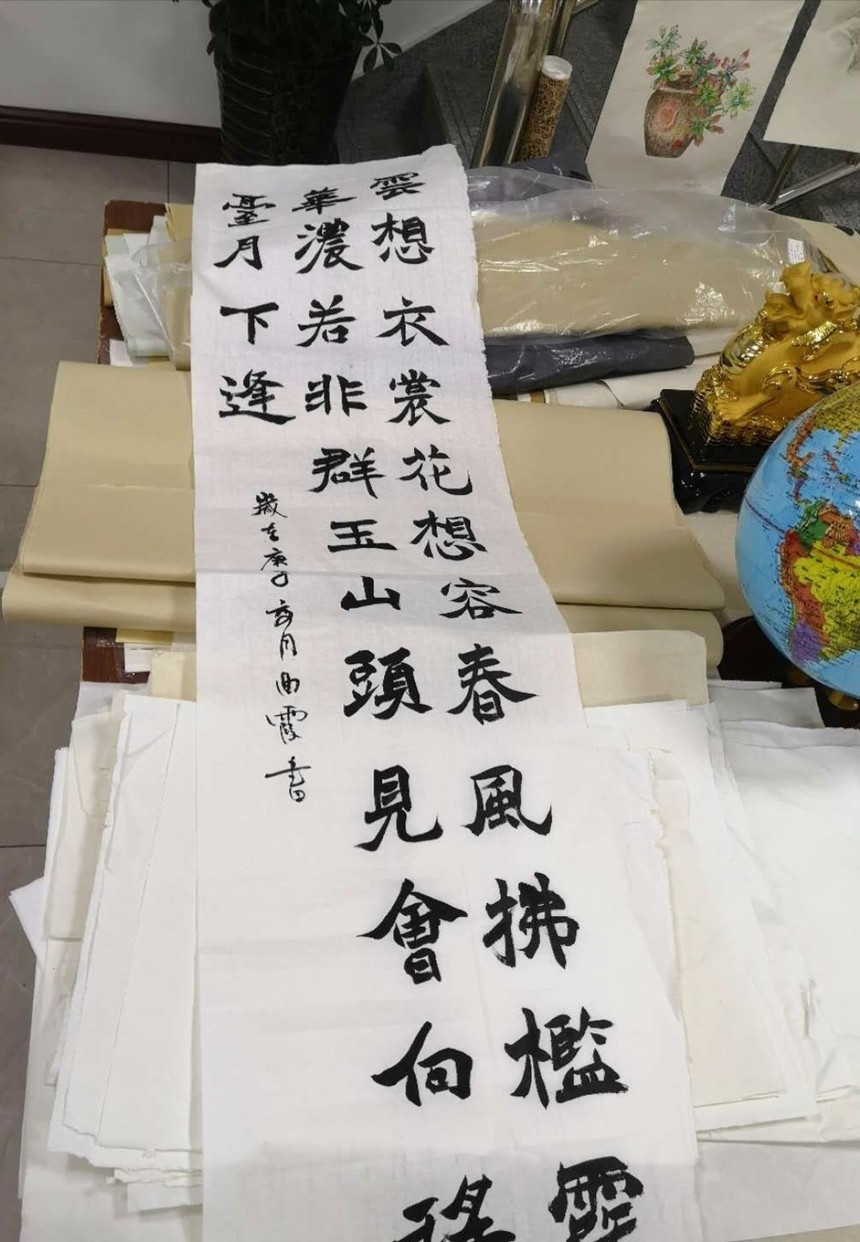 雲想衣裳花想容春風拂檻
華濃若非群玉山頭見會向
臺月下逢
歲在庚子亥月曲霞書